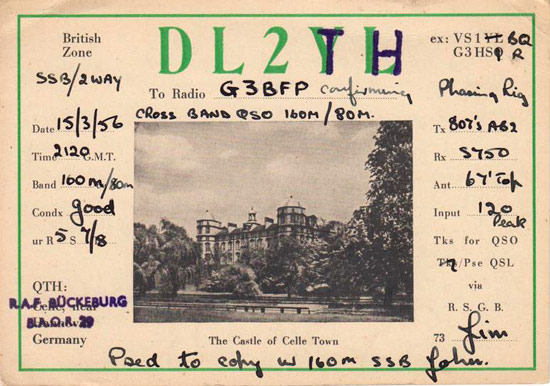 British Zone
DL2TH
ex: VS1 BQ
G3HS R
SSB/2WAY
To Radio G3BFP confirming
Phasing Rig
CROSS BAND QSO 160M/80M.
Date 15/3/56
Time 2120 G.M.T.
Band 160m/80m
Condx good
ur R 5 S 7/8
Tx 807's AB2
Rx S750
Ant 67' Top
Input 120 Peak
Tks for QSO
/Pse QSL
via
R. S. G. B.
73 Jim
QTH:
R.A.F. BÜCKEBURG
B.A.O.R. 29
Germany
The Castle of Celle Town
Psed to copy ur 160m SSB John.